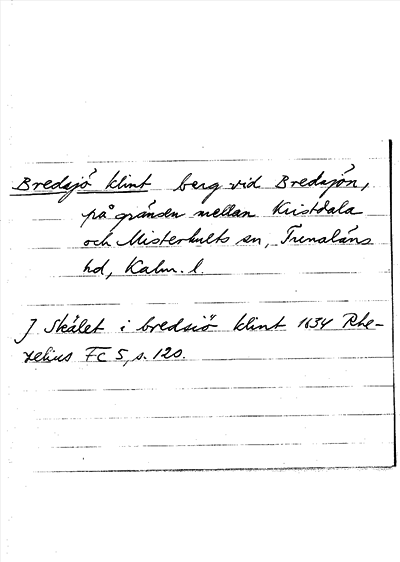 Bredsjö klint berg vid Bredsjön,
på gränsen mellan Kristdala
och Misterhults sn, Tunaläns
hd, Kalm. l.
J Skålet i bredsiö klint 1634 Rhe-
zelius Fc 5, s. 120.